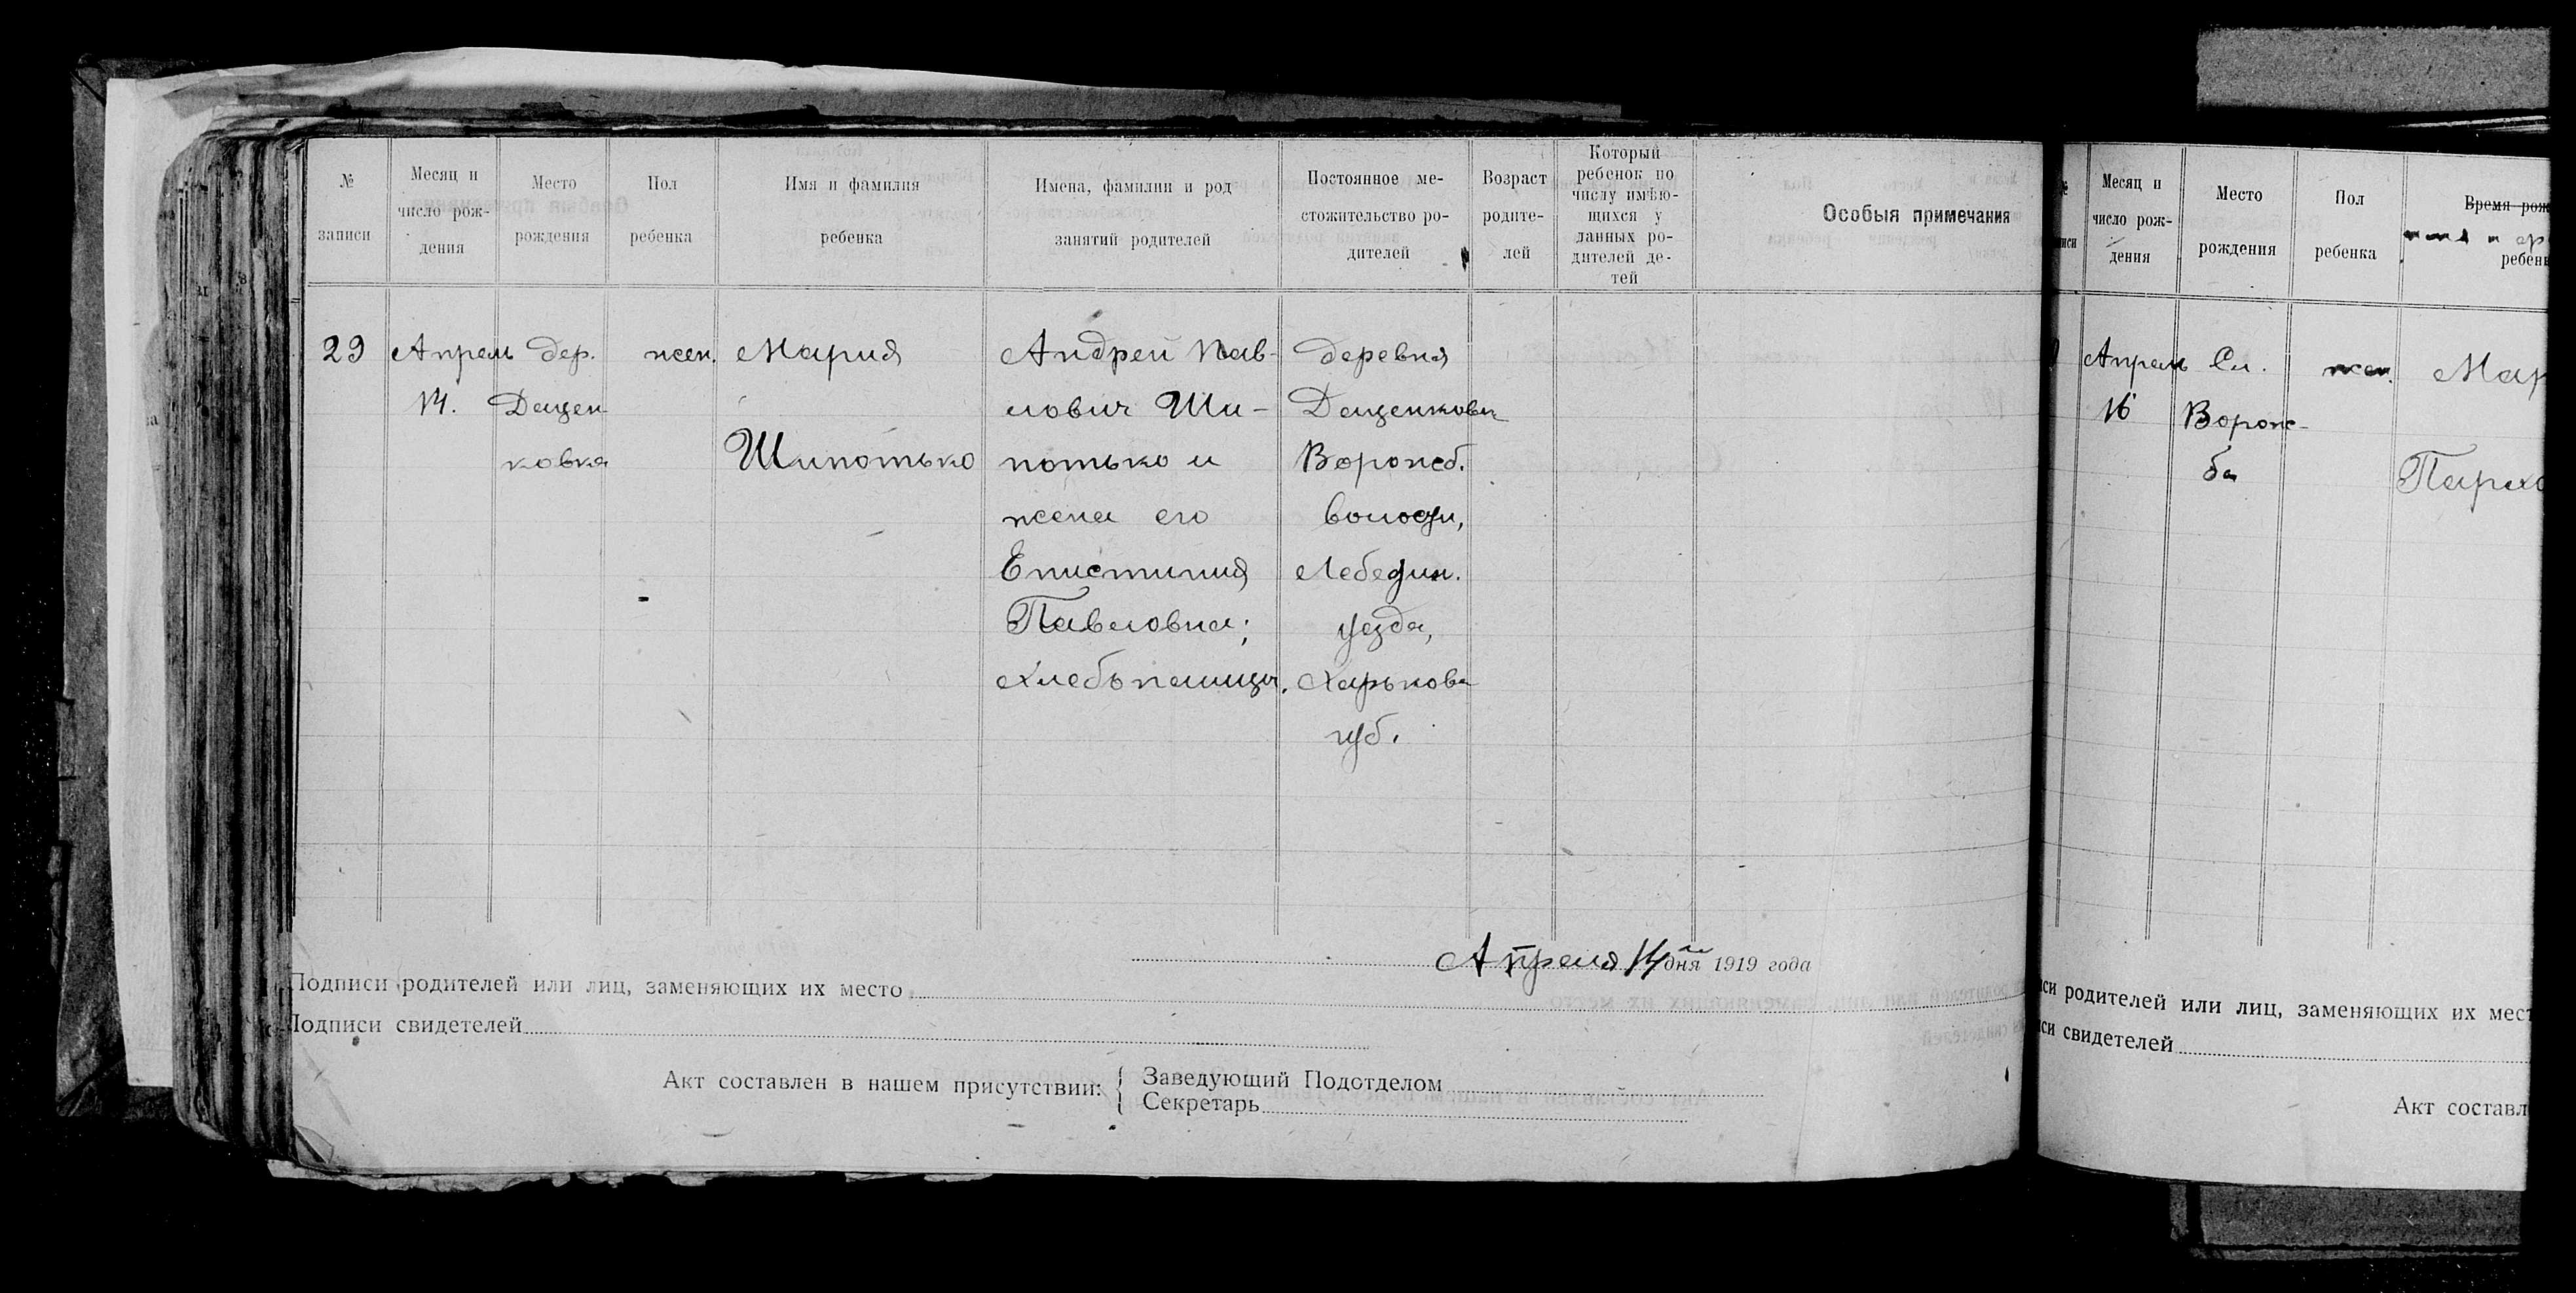 №
записи
Месяц и
число рож-
дения
Место
рождения
Пол
ребенка
Имя и фамилия
ребенка
Имена, фамилии и род
занятий родителей
Постоянное ме-
стожительство ро-
дителей
Возраст
родите-
лей
Который
ребенок по
числу имѣю-
щихся у
данных ро-
дителей де-
тей
Особыя примечания
29
Апрель
14.
дер.
Дацен-
ковка
жен.
Мария
Шипотько
Андрей Пав-
лович Ши-
потько и
жена его
Епистимия
Павловна;
Хлебопашцы.
деревня
Даценковка
Ворожб.
волости,
Лебедин.
уезда,
Харьков
губ.
Апреля 14 дня 1919 года
Подписи родителей или лиц, заменяющих их место
Подписи свидетелей
Акт составлен в нашем присутствии:
Заведующий Подотделом
Секретарь
Месяц и
число рож-
дения
Место
рождения
Пол
ребенка
Время рож
ребен
Апрель
16
Сл.
Ворож-
ба
жен.
Мар
Пархо
си родителей или лиц, заменяющих их мест
си свидетелей
Акт составл